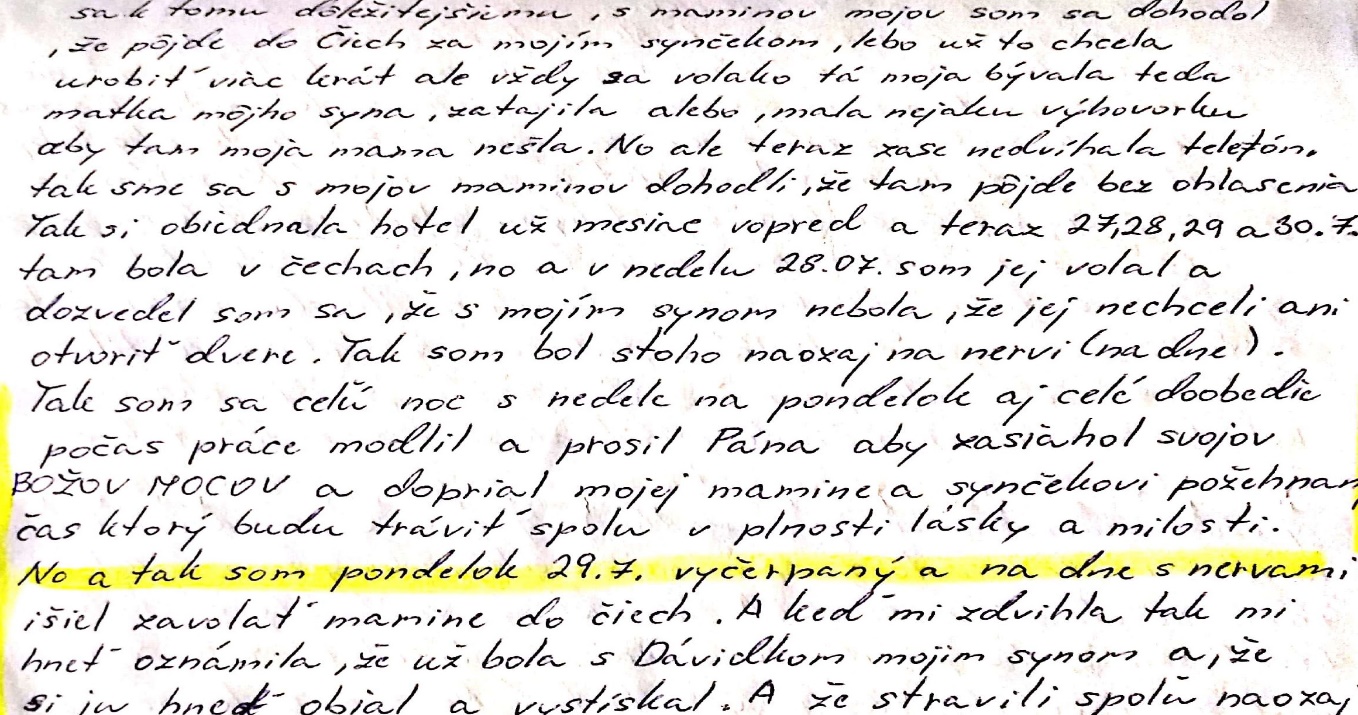 sa k tomu dôležitejšiemu, s maminov mojov som sa dohodol
, že pôjde do Čiech za mojím synčekom, lebo už to chcela
urobiť viac krát ale vždy sa volako tá moja bývala teda
matka môjho syna, zatajila alebo, mala nejaku výhovorku
aby tam moja mama nešla. No ale teraz zase nedvíhala telefón.
tak sme sa s mojov maminov dohodli, že tam pôjde bez ohlasenia
Tak si obiednala hotel už mesiac vopred a teraz 27,28,29 a 30.7.
tam bola v čechach, no a v nedelu 28.07. som jej volal a
dozvedel som sa, že s mojím synom nebola, že jej nechceli ani
otvoriť dvere. Tak som bol stoho naozaj na nervi (na dne).
Tak som sa celú noc s nedele na pondelok aj celé doobedie
počas práce modlil a prosil Pána aby zasiahol svojov
BOŽOV MOCOV a doprial mojej mamine a synčekovi požehnan
čas ktorý budu tráviť spolu v plnosti lásky a milosti.
No a tak som pondelok 29.7. vyčerpaný a na dne s nervami
išiel zavolať mamine do čiech. A keď mi zdvihla tak mi
hneť oznámila, že už bola s Dávidkom mojim synom a, že
si ju hneď obial a vystískal. A že stravili spolu naozaj